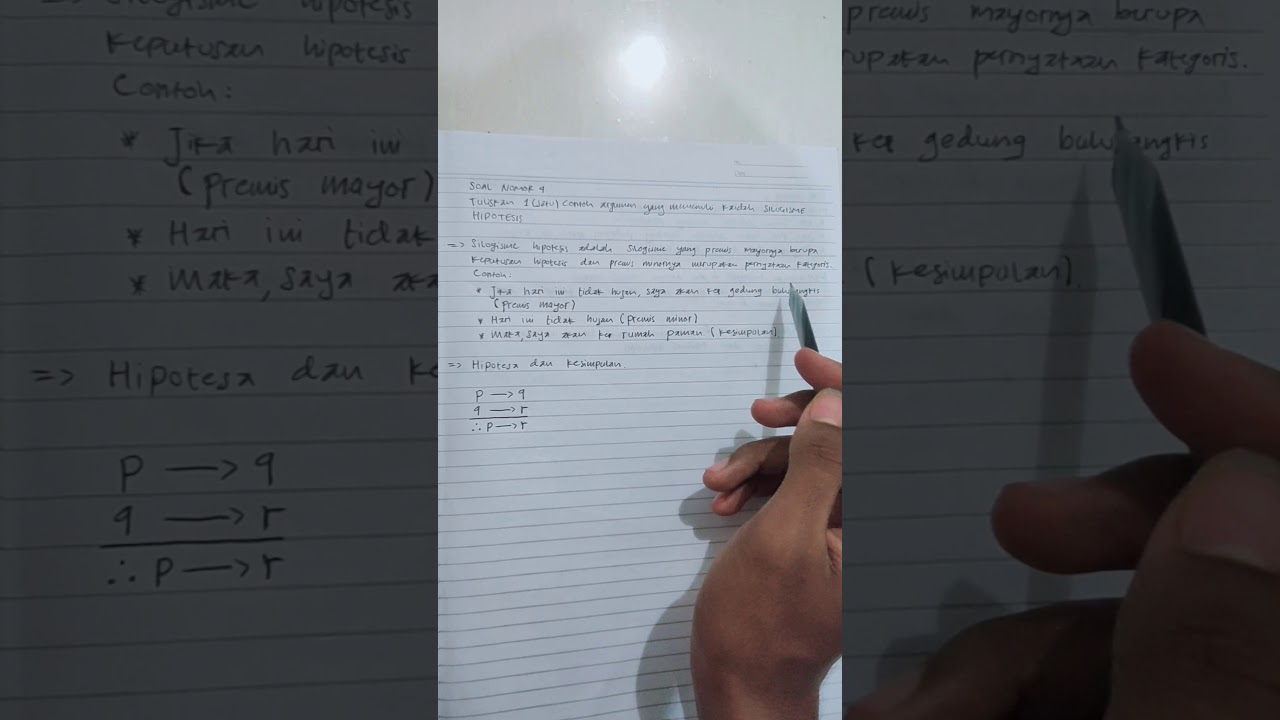 SOAL NOMOR 4
Tuliskan 1 (satu) contoh argumen yang memenuhi kaidah SILOGISME
HIPOTESIS
=> Silogisme hipotesis adalah silogisme yang premis mayornya berupa
keputusan hipotesis dan premis minornya merupakan pernyataan kategoris.
Contoh:
* Jika hari ini tidak hujan, saya akan ke gedung bulutangkis
(premis mayor)
* Hari ini tidak hujan (premis minor)
* Maka, saya akan ke rumah paman (kesimpulan).
=> Hipotesa dan kesimpulan.
p → q
q → r
∴ p → r